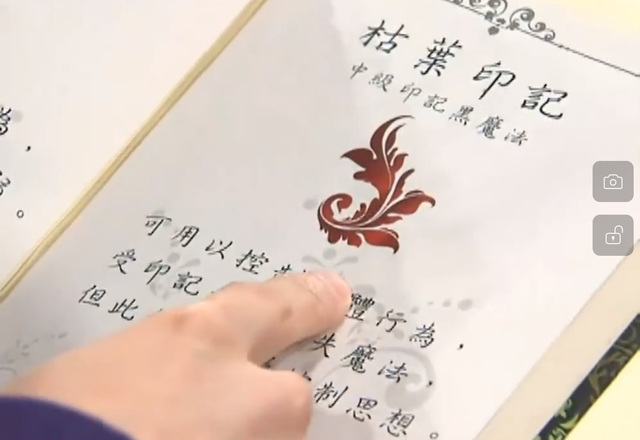 為，
枯葉印記
中級印記黑魔法
可用以控 體行為，
受印記 失魔法，
但此 制思想。